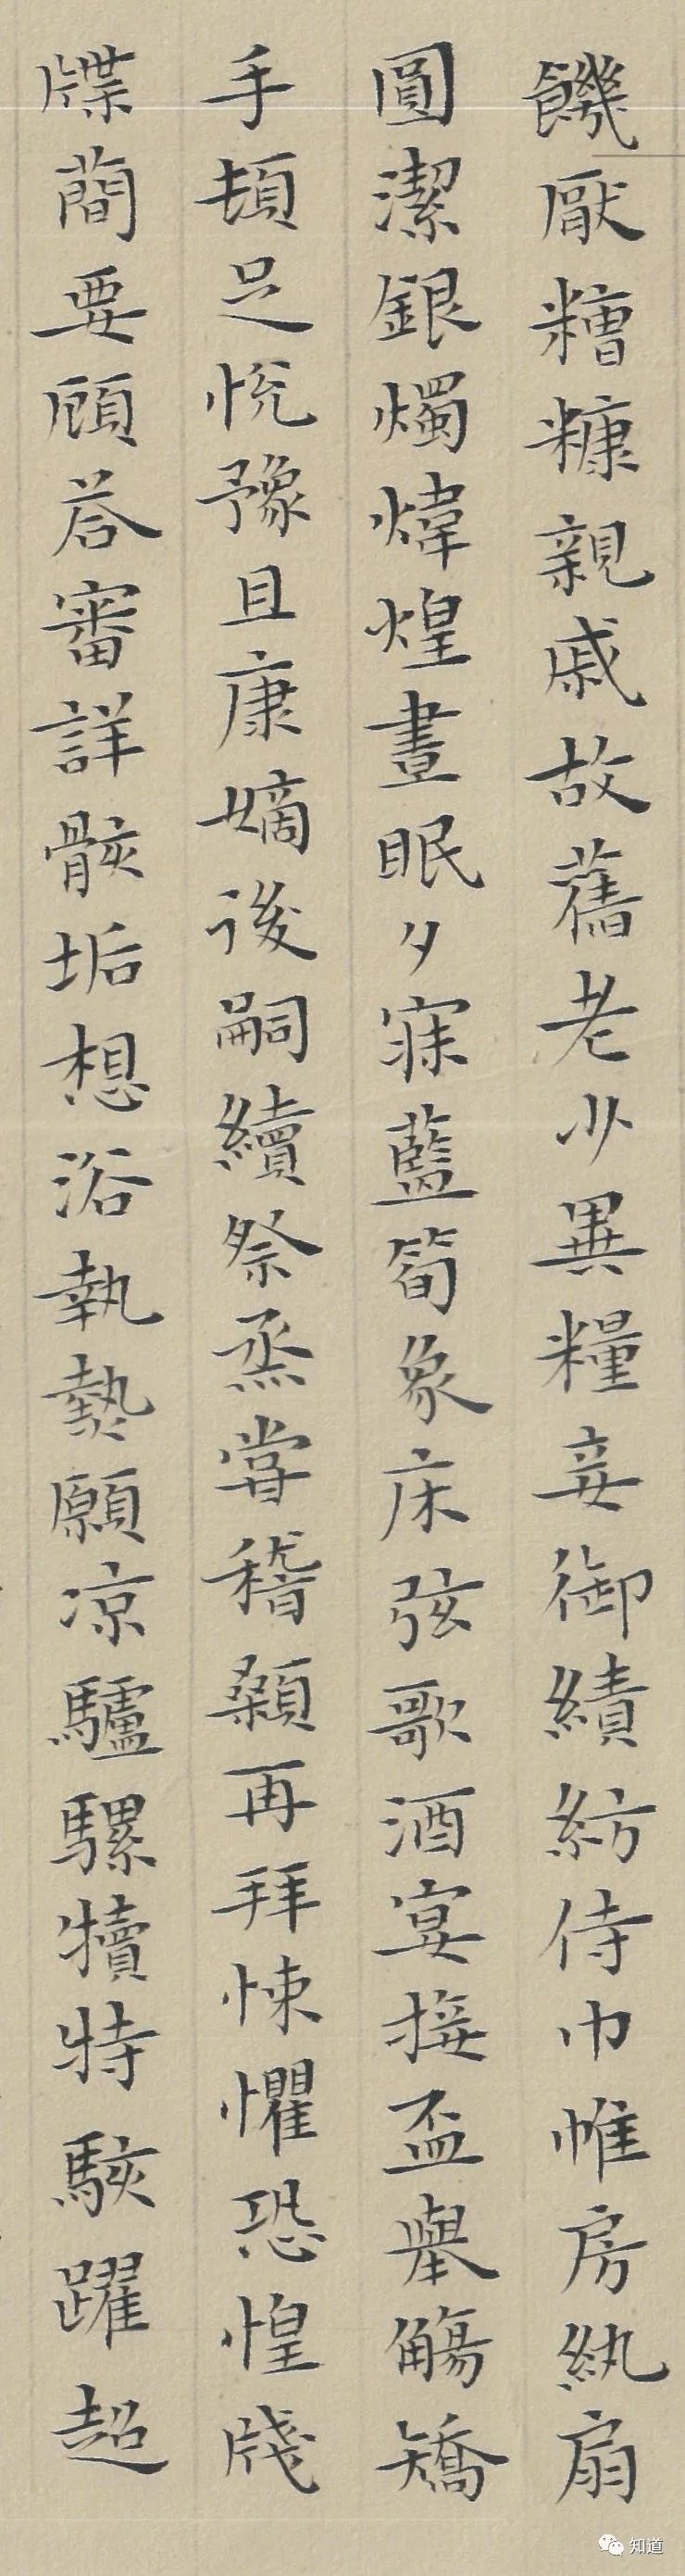 饑厭糟糠親戚故舊老少異糧妾御績紡侍巾帷房紈扇
圓潔銀燭煒煌晝眠夕寐藍筍象床弦歌酒宴接盃舉觴矯
手頓足悅豫且康嫡後嗣續祭烝甞稽顙再拜悚懼恐惶牋
牒蕳要顧荅審詳骸垢想浴執熱願凉驢騾犢特駭躍超
知道